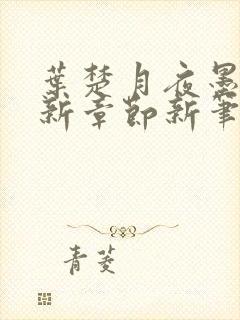 葉楚月夜墨
新章節新筆
青菱